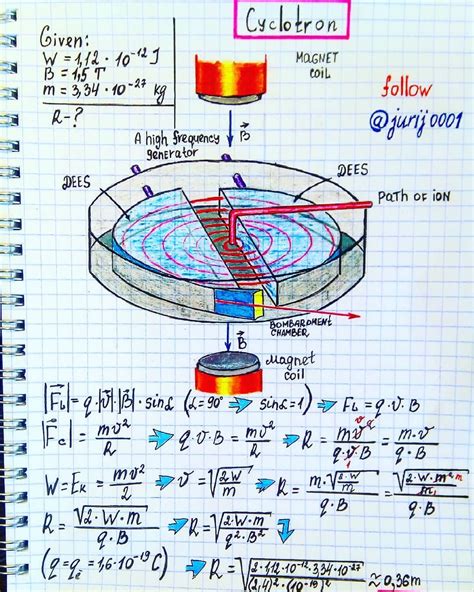 Cyclotron
Given:
W = 1,12 · 10⁻¹² J
B = 1,5 T
m = 3,34 · 10⁻²⁷ kg
R-?
MAGNET
COIL
follow
@jurij0001
A high frequency
generator
B⃗
DEES
DEES
PATH OF ION
BOMBARDMENT
CHAMBER
B⃗
Magnet
coil
|F⃗L| = q·|v⃗|·|B⃗|·sinα (α=90° ⇒ sinα=1) ⇒ FL = q·v·B
|F⃗c| = mv²/R ⇒ q·v·B = mv²/R ⇒ R = mv²/(q·v·B) = m·v/(q·B)
W=Eк = mv²/2 ⇒ v = √(2·W/m) ⇒ R = m·√(2·W/m)/(q·B) = √(2·W·m²/m)/(q·B)
R = √(2·W·m)/(q·B) ⇒ R = √(2·W·m/(q²·B²))
(q = qē = 1,6·10⁻¹⁹ C) ⇒ R = √(2·1,12·10⁻¹²·3,34·10⁻²⁷/((2,4)²·(10⁻¹⁹)²)) ≈ 0,36m